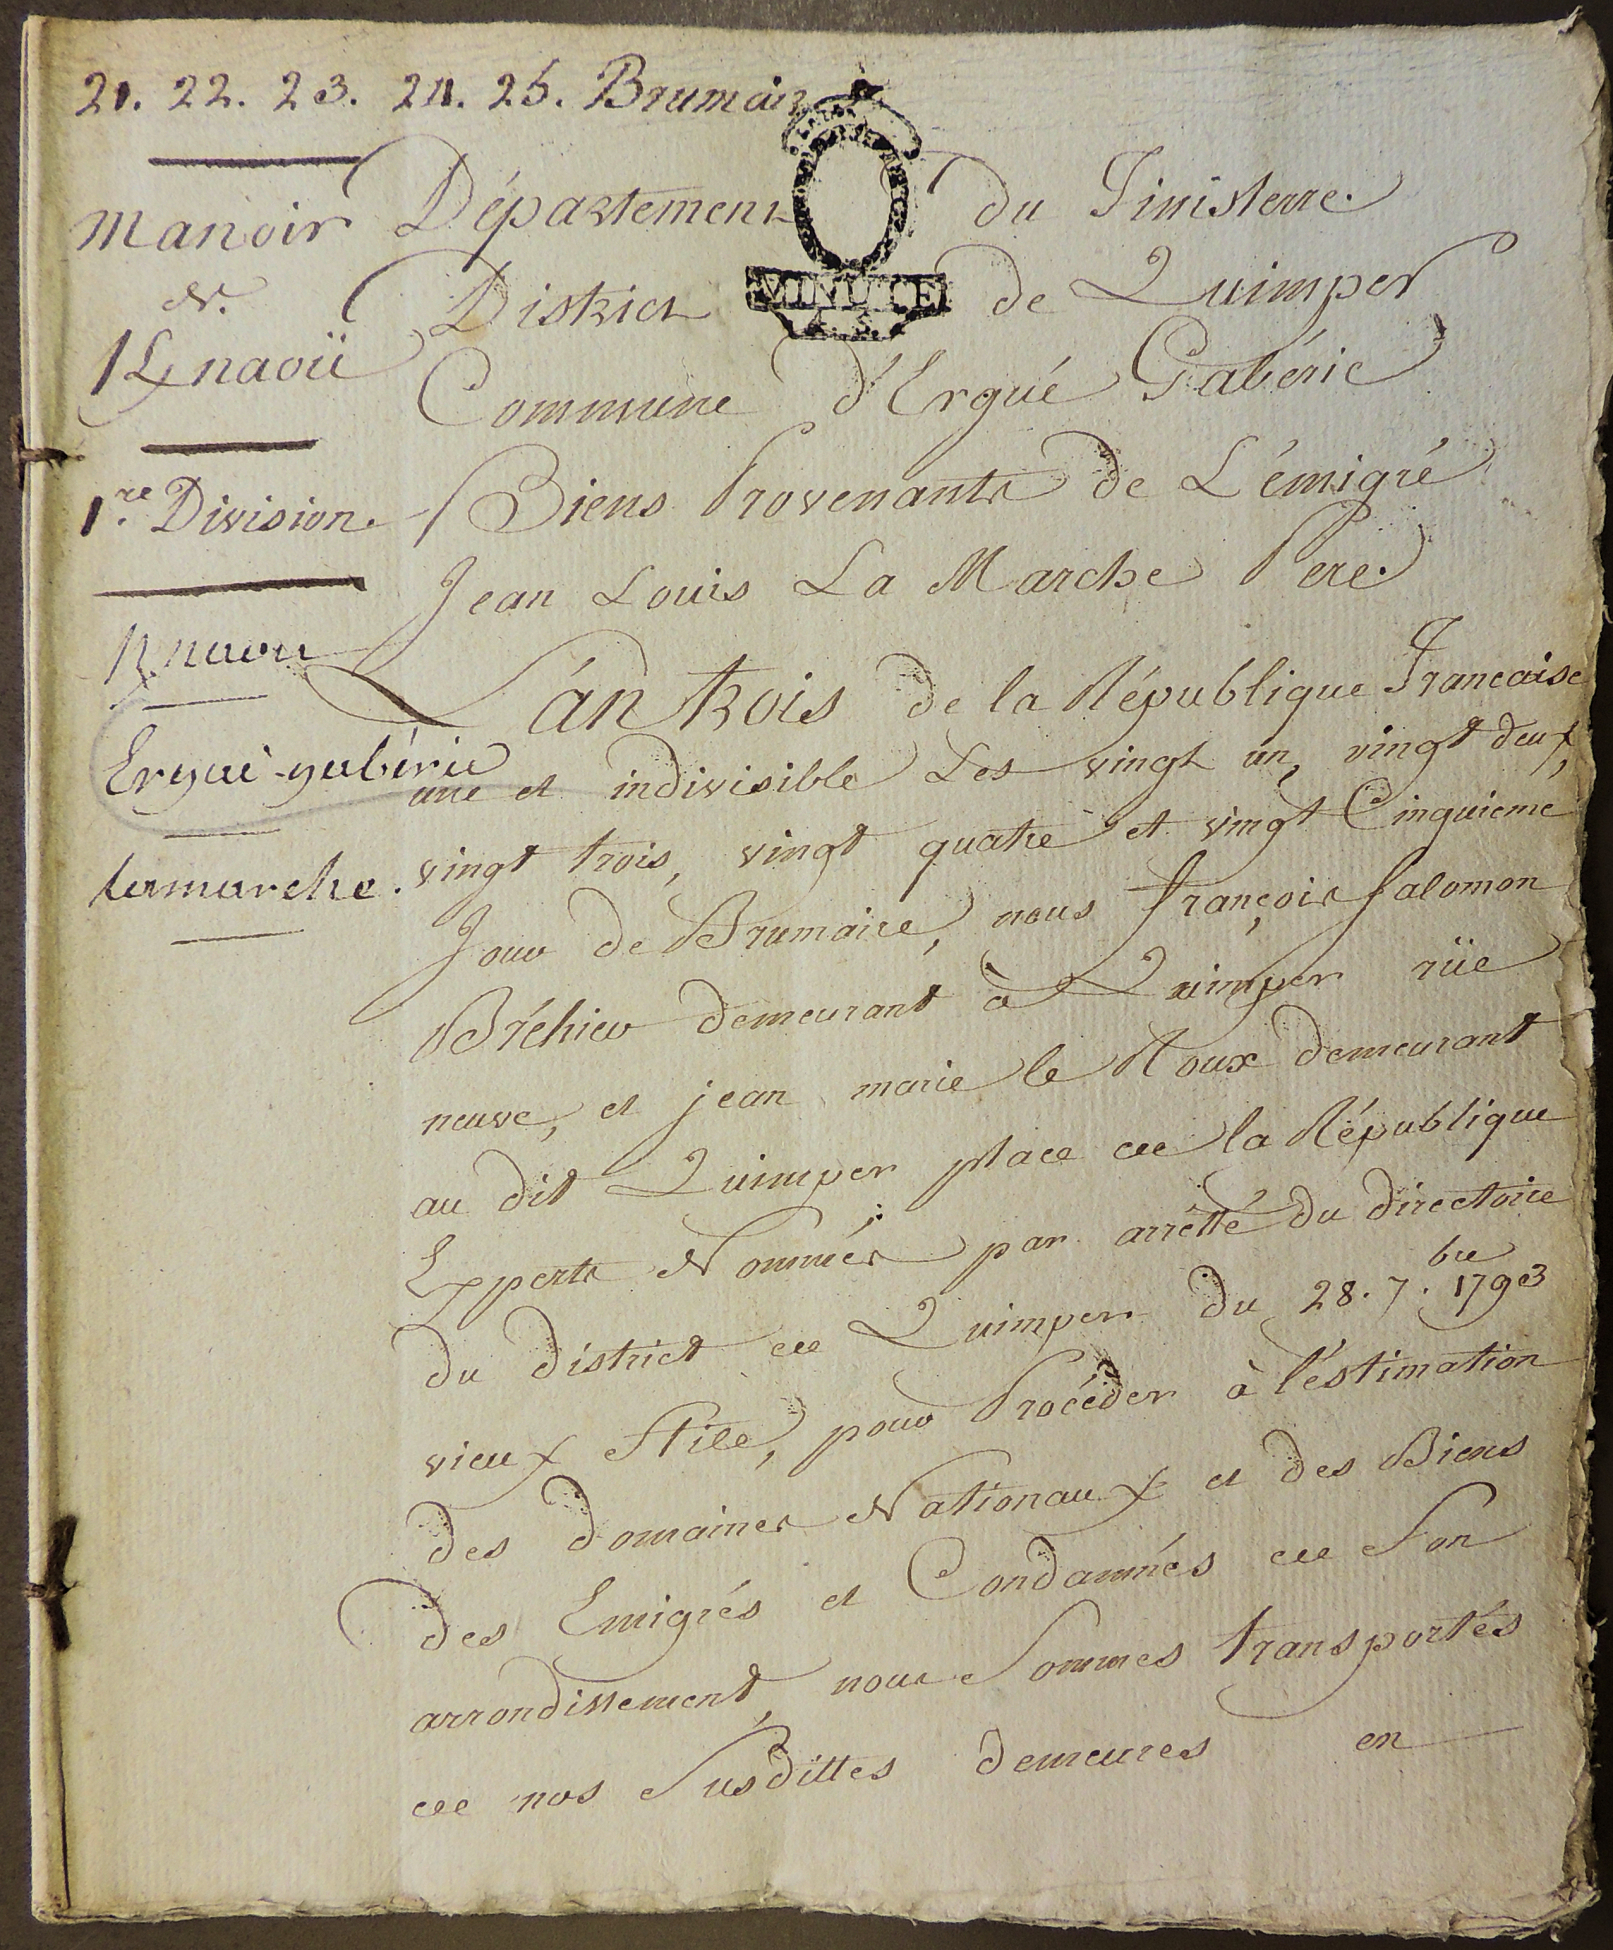 21. 22. 23. 24. 25. Brumair
Manoir
de
Kernaoü
1.re Division.
Kernaou
Ergué-gabéric
Lamarche.
Département du Finisterre.
District de Quimper
MINUTE
Commune d'Ergué Gabéric
Biens Provenants de L'émigré
Jean Louis La Marche Pere.
L'án trois de la République Francaise
une et indivisible Les vingt un, vingt deux,
vingt trois, vingt quatre et vingt Cinquieme
Jour de Brumaire, nous françois Salomon
Bréhier demeurant à Quimper rüe
neuve, et jean marie le Roux demeurant
au dit Quimper place de la République
Experts Nommés par arrêtté du directoire
du district de Quimper du 28. 7.bre 1793
vieux Stile, pour Procéder à l'éstimation
des domaines Nationaux et des Biens
des Emigrés et Condamnés de Son
arrondissement, nous Sommes transportés
de nos Susdittes demeures en